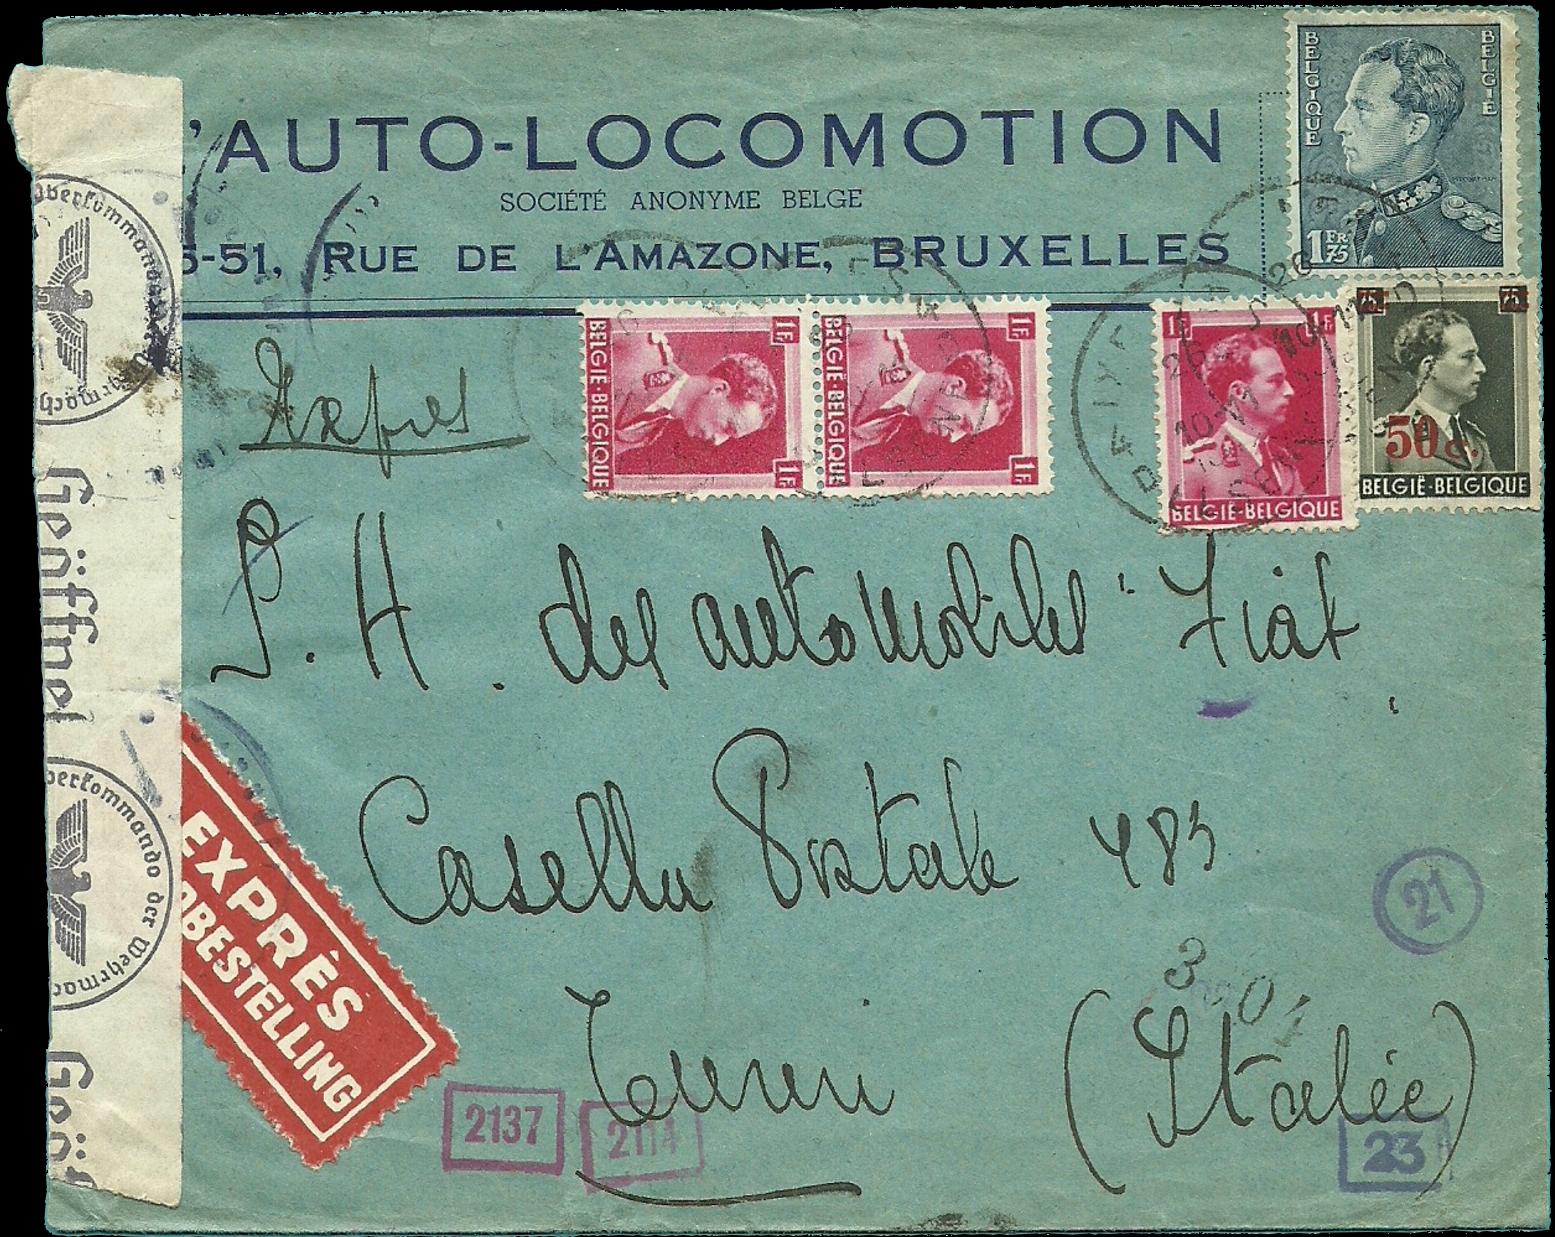 'AUTO-LOCOMOTION
SOCIÉTÉ ANONYME BELGE
5-51, RUE DE L'AMAZONE, BRUXELLES
BELGIQUE BELGIË
1 FR 75
Expres
BELGIE-BELGIQUE 1F 1F
BELGIE-BELGIQUE 1F 1F
1F 1F
BELGIE-BELGIQUE
75 75
50 c.
BELGIË-BELGIQUE
26
10-11
Oberkommando der Wehrmacht
Geöffnet
Oberkommando der Wehrmac
Geö
S. A. des automobiles Fiat
Casella Postale 485
Turin (Italie)
EXPRÈS
OBESTELLING
21
3001
2137
2114
23